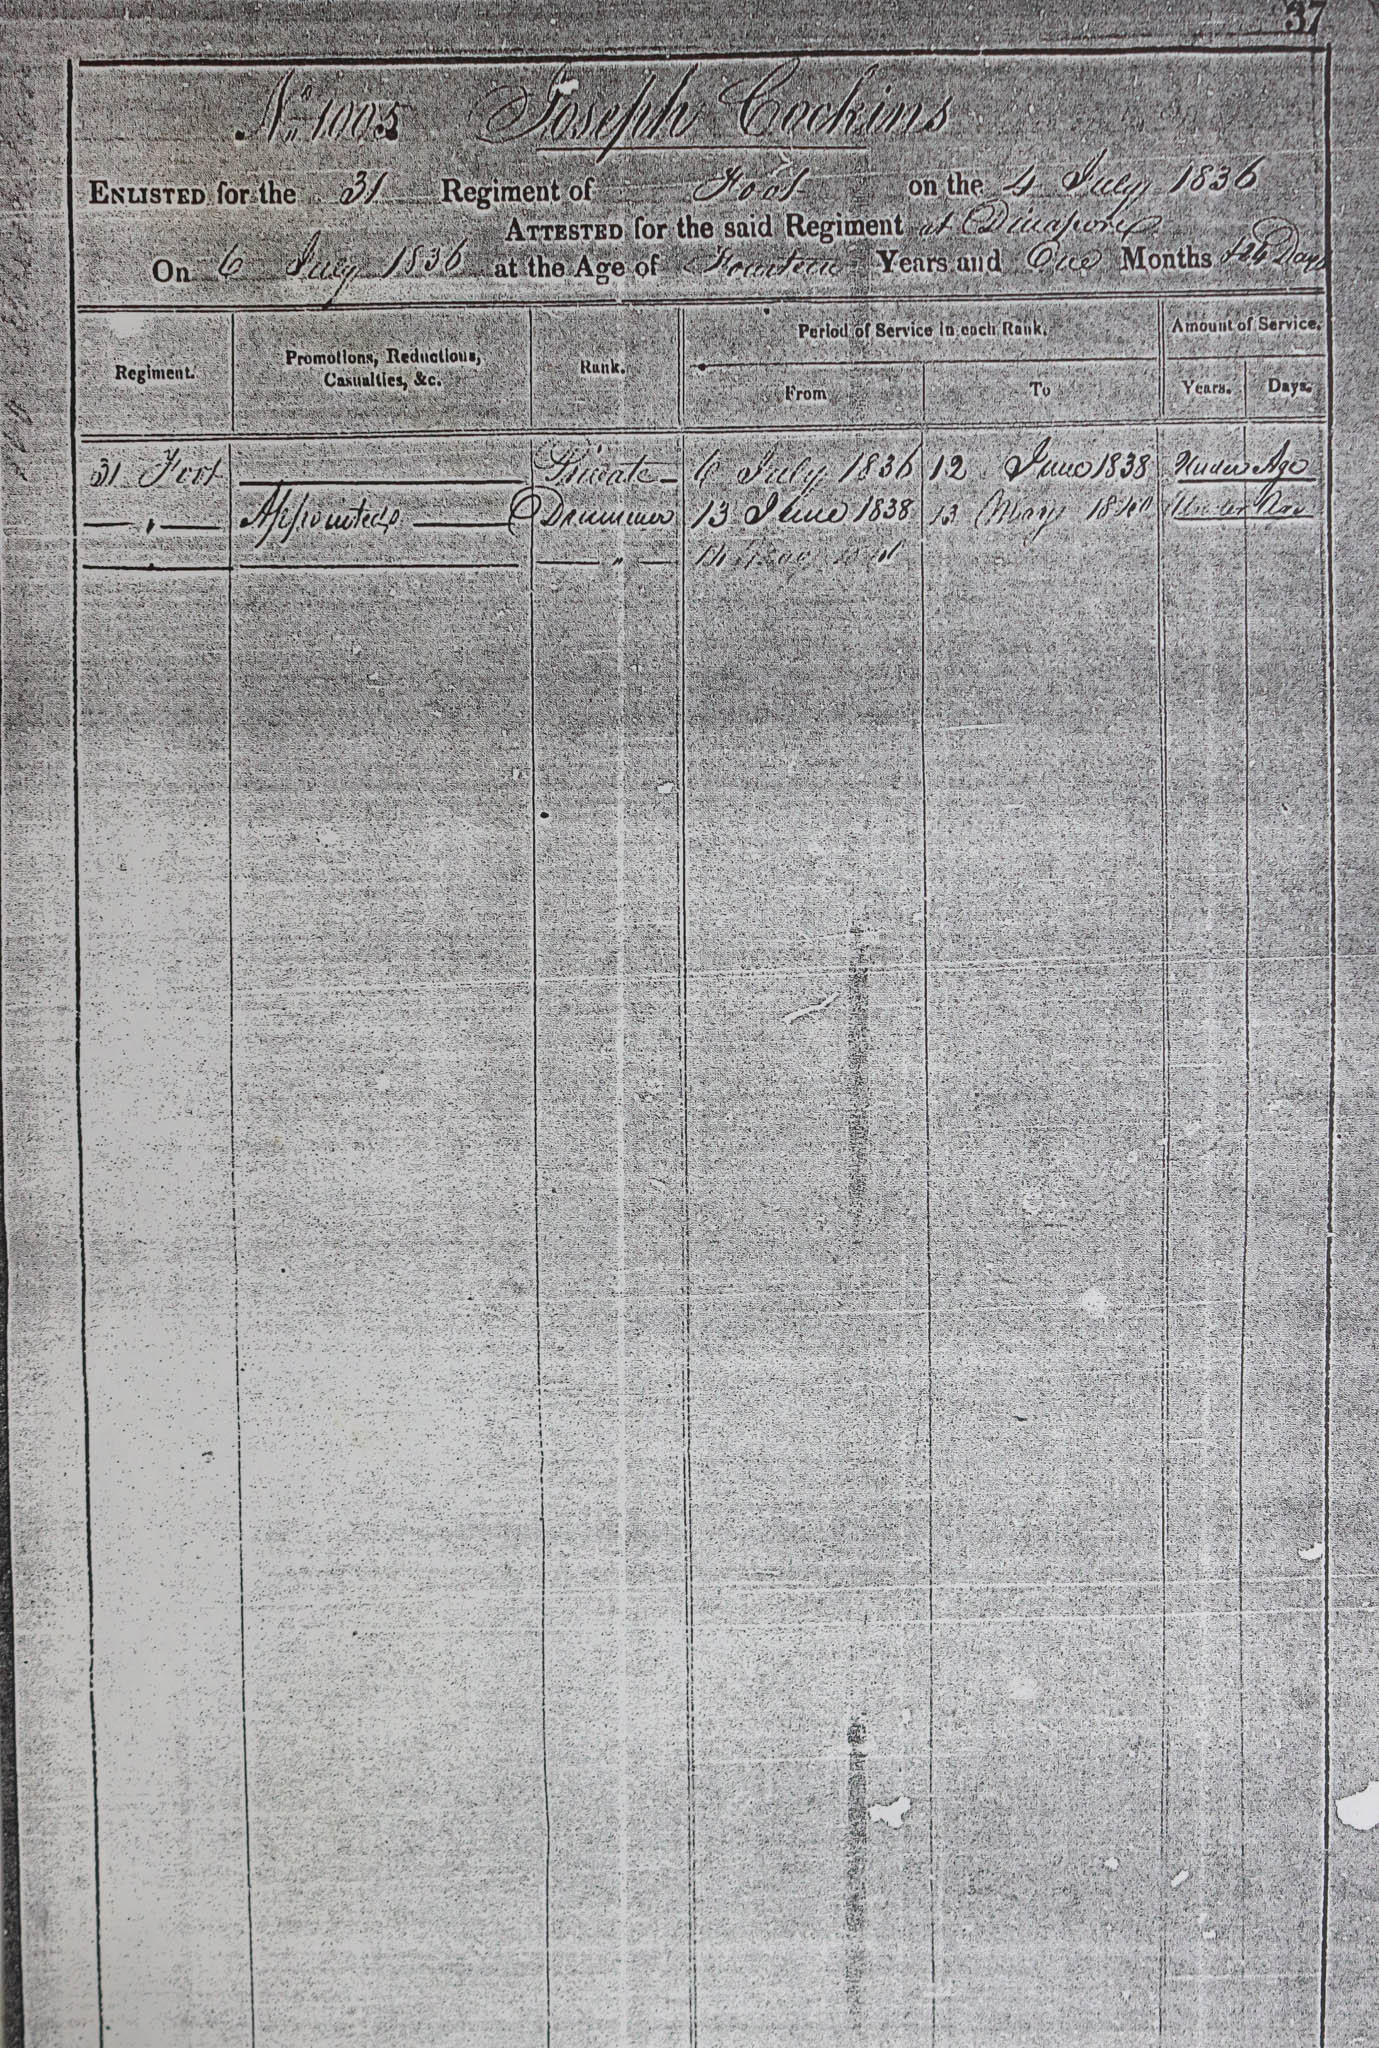 37
No. 1005 Joseph Cockins
ENLISTED for the 31 Regiment of Foot on the 4 July 1836
ATTESTED for the said Regiment at Dinapore
On 6 July 1836 at the Age of Fourteen Years and One Months & 24 Days
Regiment. Promotions, Reductions, Casualties, &c. Rank. Period of Service in each Rank. Amount of Service.
From To Years. Days.
31 Foot Private 6 July 1836 12 June 1838 Under Age
" Appointed Drummer 13 June 1838 13 May 1840 Under Age
" " 14 May